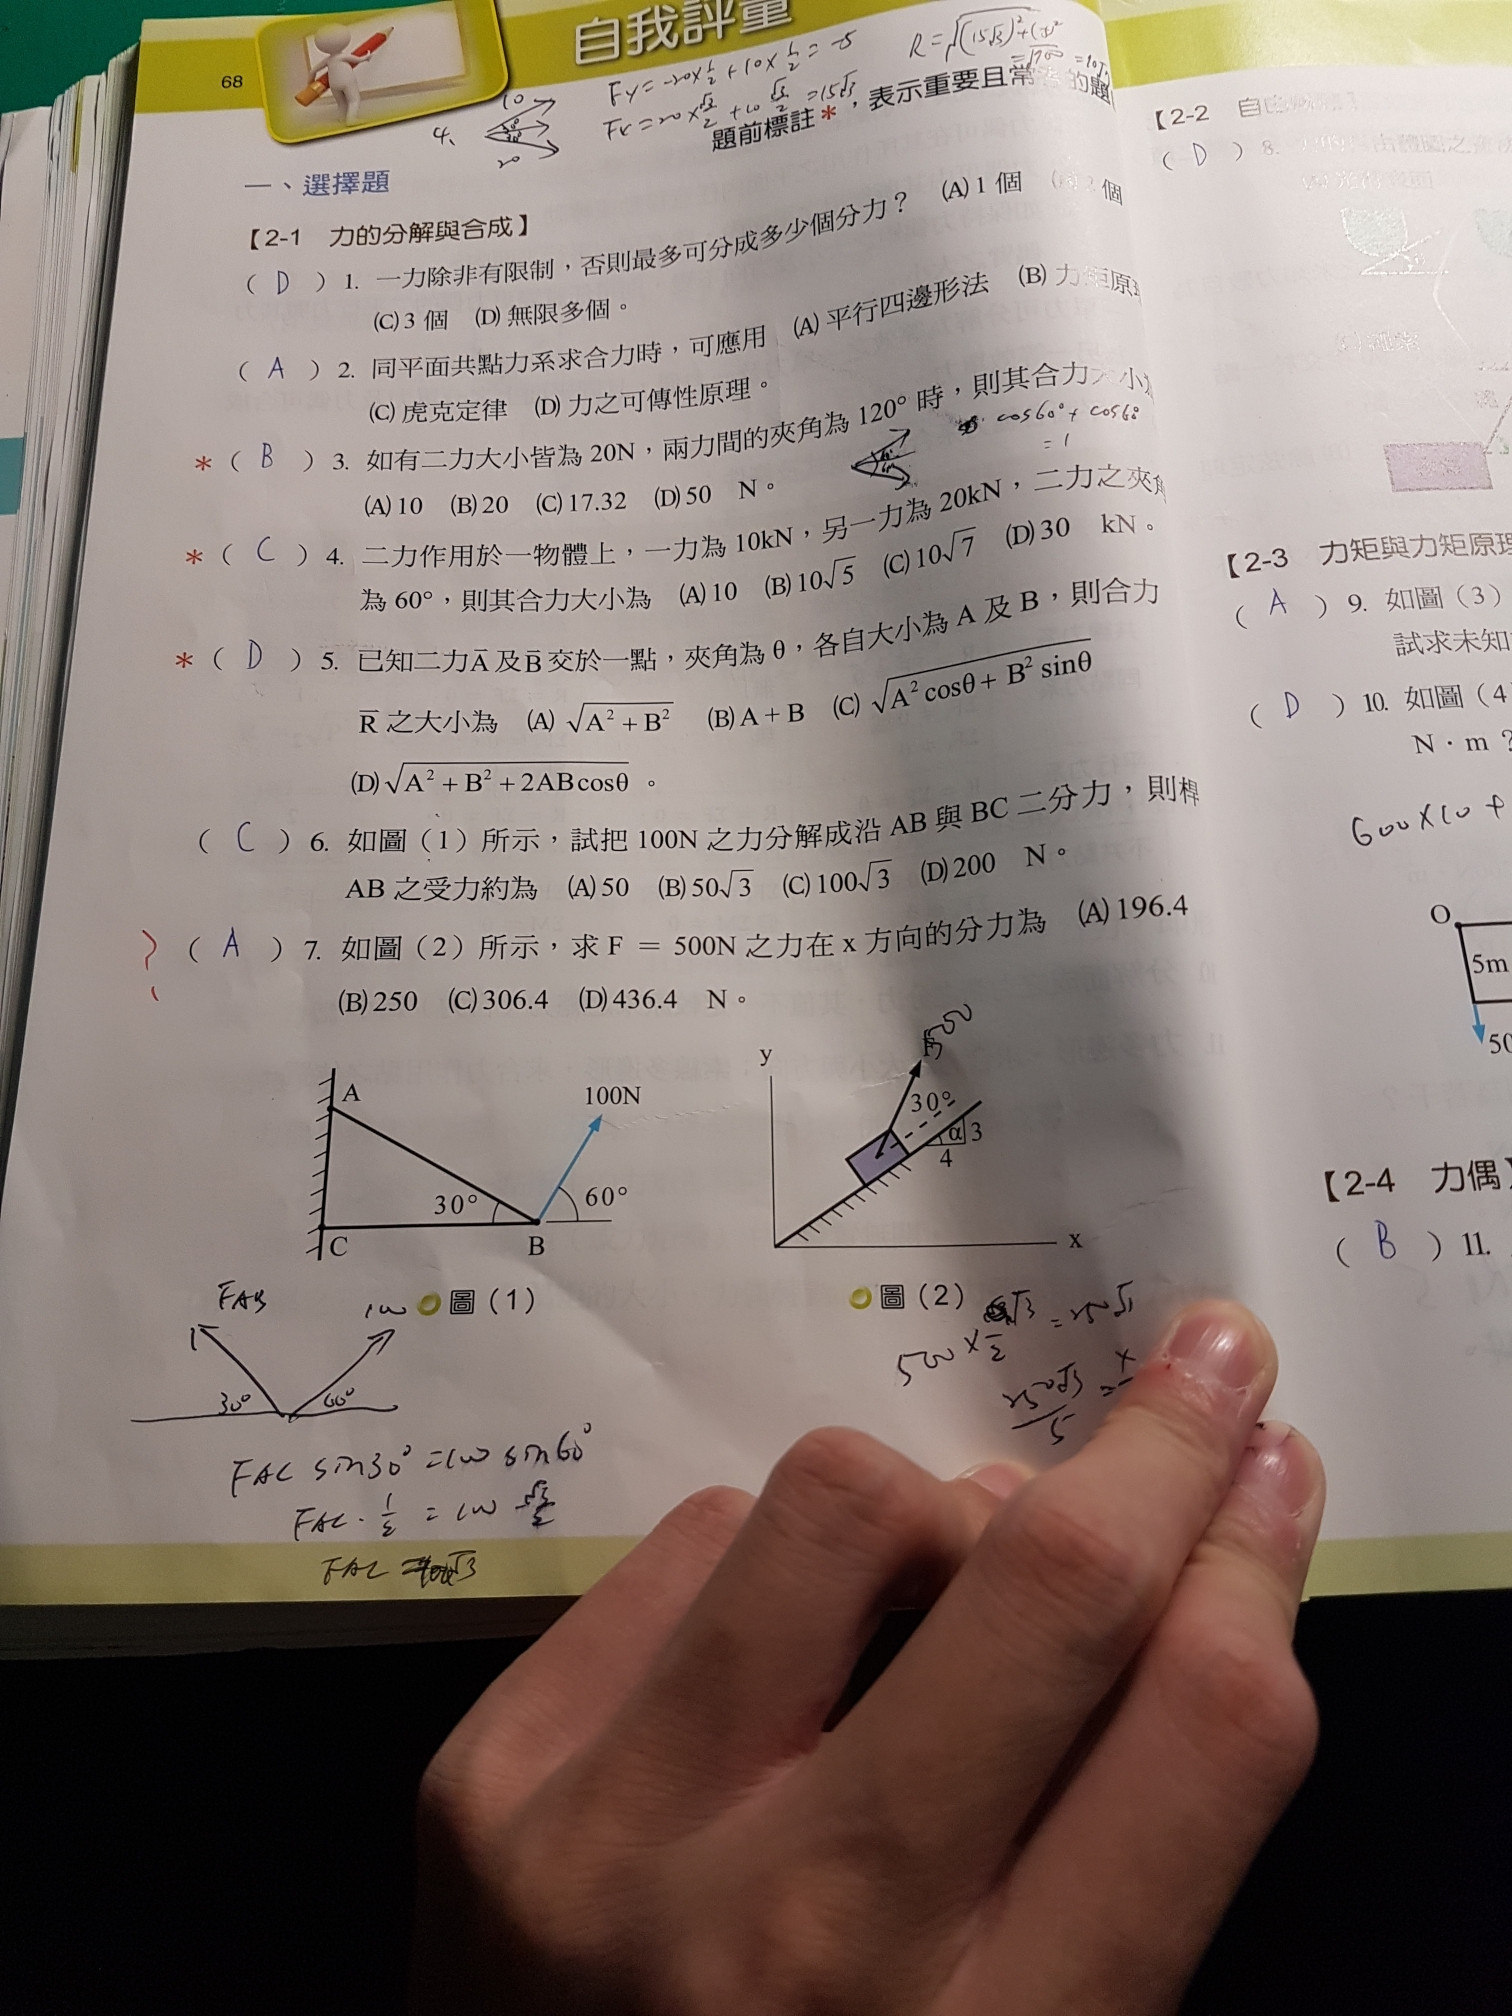 68
自我評量
4、
10
20
Fy = -20×1/2 + 10×1/2 = -5
Fx = 20×√3/2 + 10 √3/2 = 15√3
題前標註*,表示重要且常 的題
一、選擇題
【2-1 力的分解與合成】
( D ) 1. 一力除非有限制,否則最多可分成多少個分力? (A) 1 個 個
(C) 3 個 (D) 無限多個。
( A ) 2. 同平面共點力系求合力時,可應用 (A) 平行四邊形法 (B) 力矩原
(C) 虎克定律 (D) 力之可傳性原理。
*( B ) 3. 如有二力大小皆為 20N,兩力間的夾角為 120° 時,則其合力大小
cos60° + cos60
= 1
(A) 10 (B) 20 (C) 17.32 (D) 50 N。
*( C ) 4. 二力作用於一物體上,一力為 10kN,另一力為 20kN,二力之夾角
為 60°,則其合力大小為 (A) 10 (B) 10√5 (C) 10√7 (D) 30 kN。
*( D ) 5. 已知二力 A̅ 及 B̅ 交於一點,夾角為 θ,各自大小為 A 及 B,則合力
R̅ 之大小為 (A) √(A² + B²) (B) A + B (C) √(A² cosθ + B² sinθ)
(D) √(A² + B² + 2ABcosθ) 。
( C ) 6. 如圖(1)所示,試把 100N 之力分解成沿 AB 與 BC 二分力,則桿
AB 之受力約為 (A) 50 (B) 50√3 (C) 100√3 (D) 200 N。
? ( A ) 7. 如圖(2)所示,求 F = 500N 之力在 x 方向的分力為 (A) 196.4
(B) 250 (C) 306.4 (D) 436.4 N。
A
100N
30°
60°
C
B
圖(1)
y
500
30°
α
3
4
x
圖(2)
FAB
100
30°
60°
FAC sin30° = 100 sin60°
FAC · 1/2 = 100 √3/2
FAC
500 ×
【2-2
( D ) 8.
【2-3 力矩與力矩原理
( A ) 9. 如圖(3)
試求未知
( D ) 10. 如圖(4
N·m?
600×10 +
O
5m
50
【2-4 力偶】
( B ) 11.